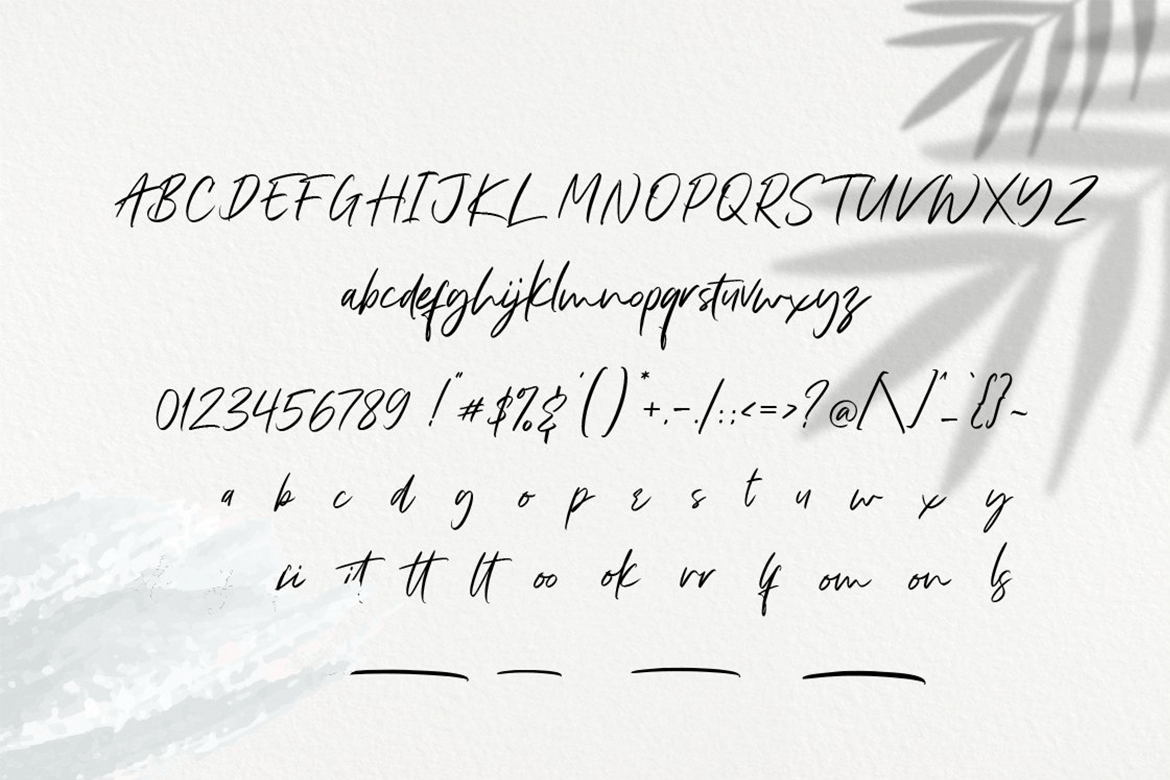 ABCDEFGHIJKLMNOPQRSTUVWXYZ
abcdefghijklmnopqrstuvwxyz
0123456789 !"#$%&'()*+,-./:;<=>?@[\]^_`{}~
a b c d g o p r s t u w x y
ii it tt lt oo ok rr lf om on ls